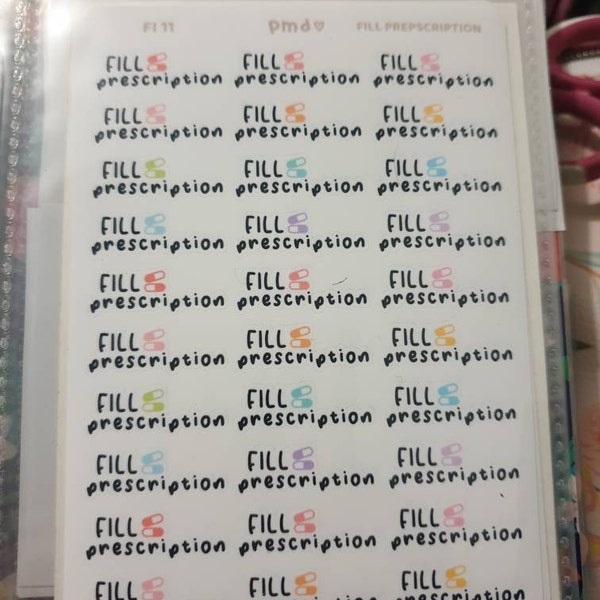 FI 11 pmd♡ FILL PREPSCRIPTION
FILL FILL FILL
prescription prescription prescription
FILL FILL FILL
prescription prescription prescription
FILL FILL FILL
prescription prescription prescription
FILL FILL FILL
prescription prescription prescription
FILL FILL FILL
prescription prescription prescription
FILL FILL FILL
prescription prescription prescription
FILL FILL FILL
prescription prescription prescription
FILL FILL FILL
prescription prescription prescription
FILL FILL FILL
prescription prescription prescription
FILL FILL FILL
prescription prescription prescription